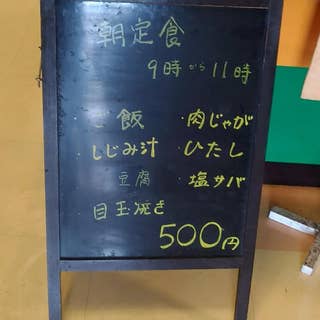 朝定食
9時から11時
飯 ・肉じゃが
しじみ汁 ・ひたし
豆腐 ・塩サバ
目玉焼き
500円